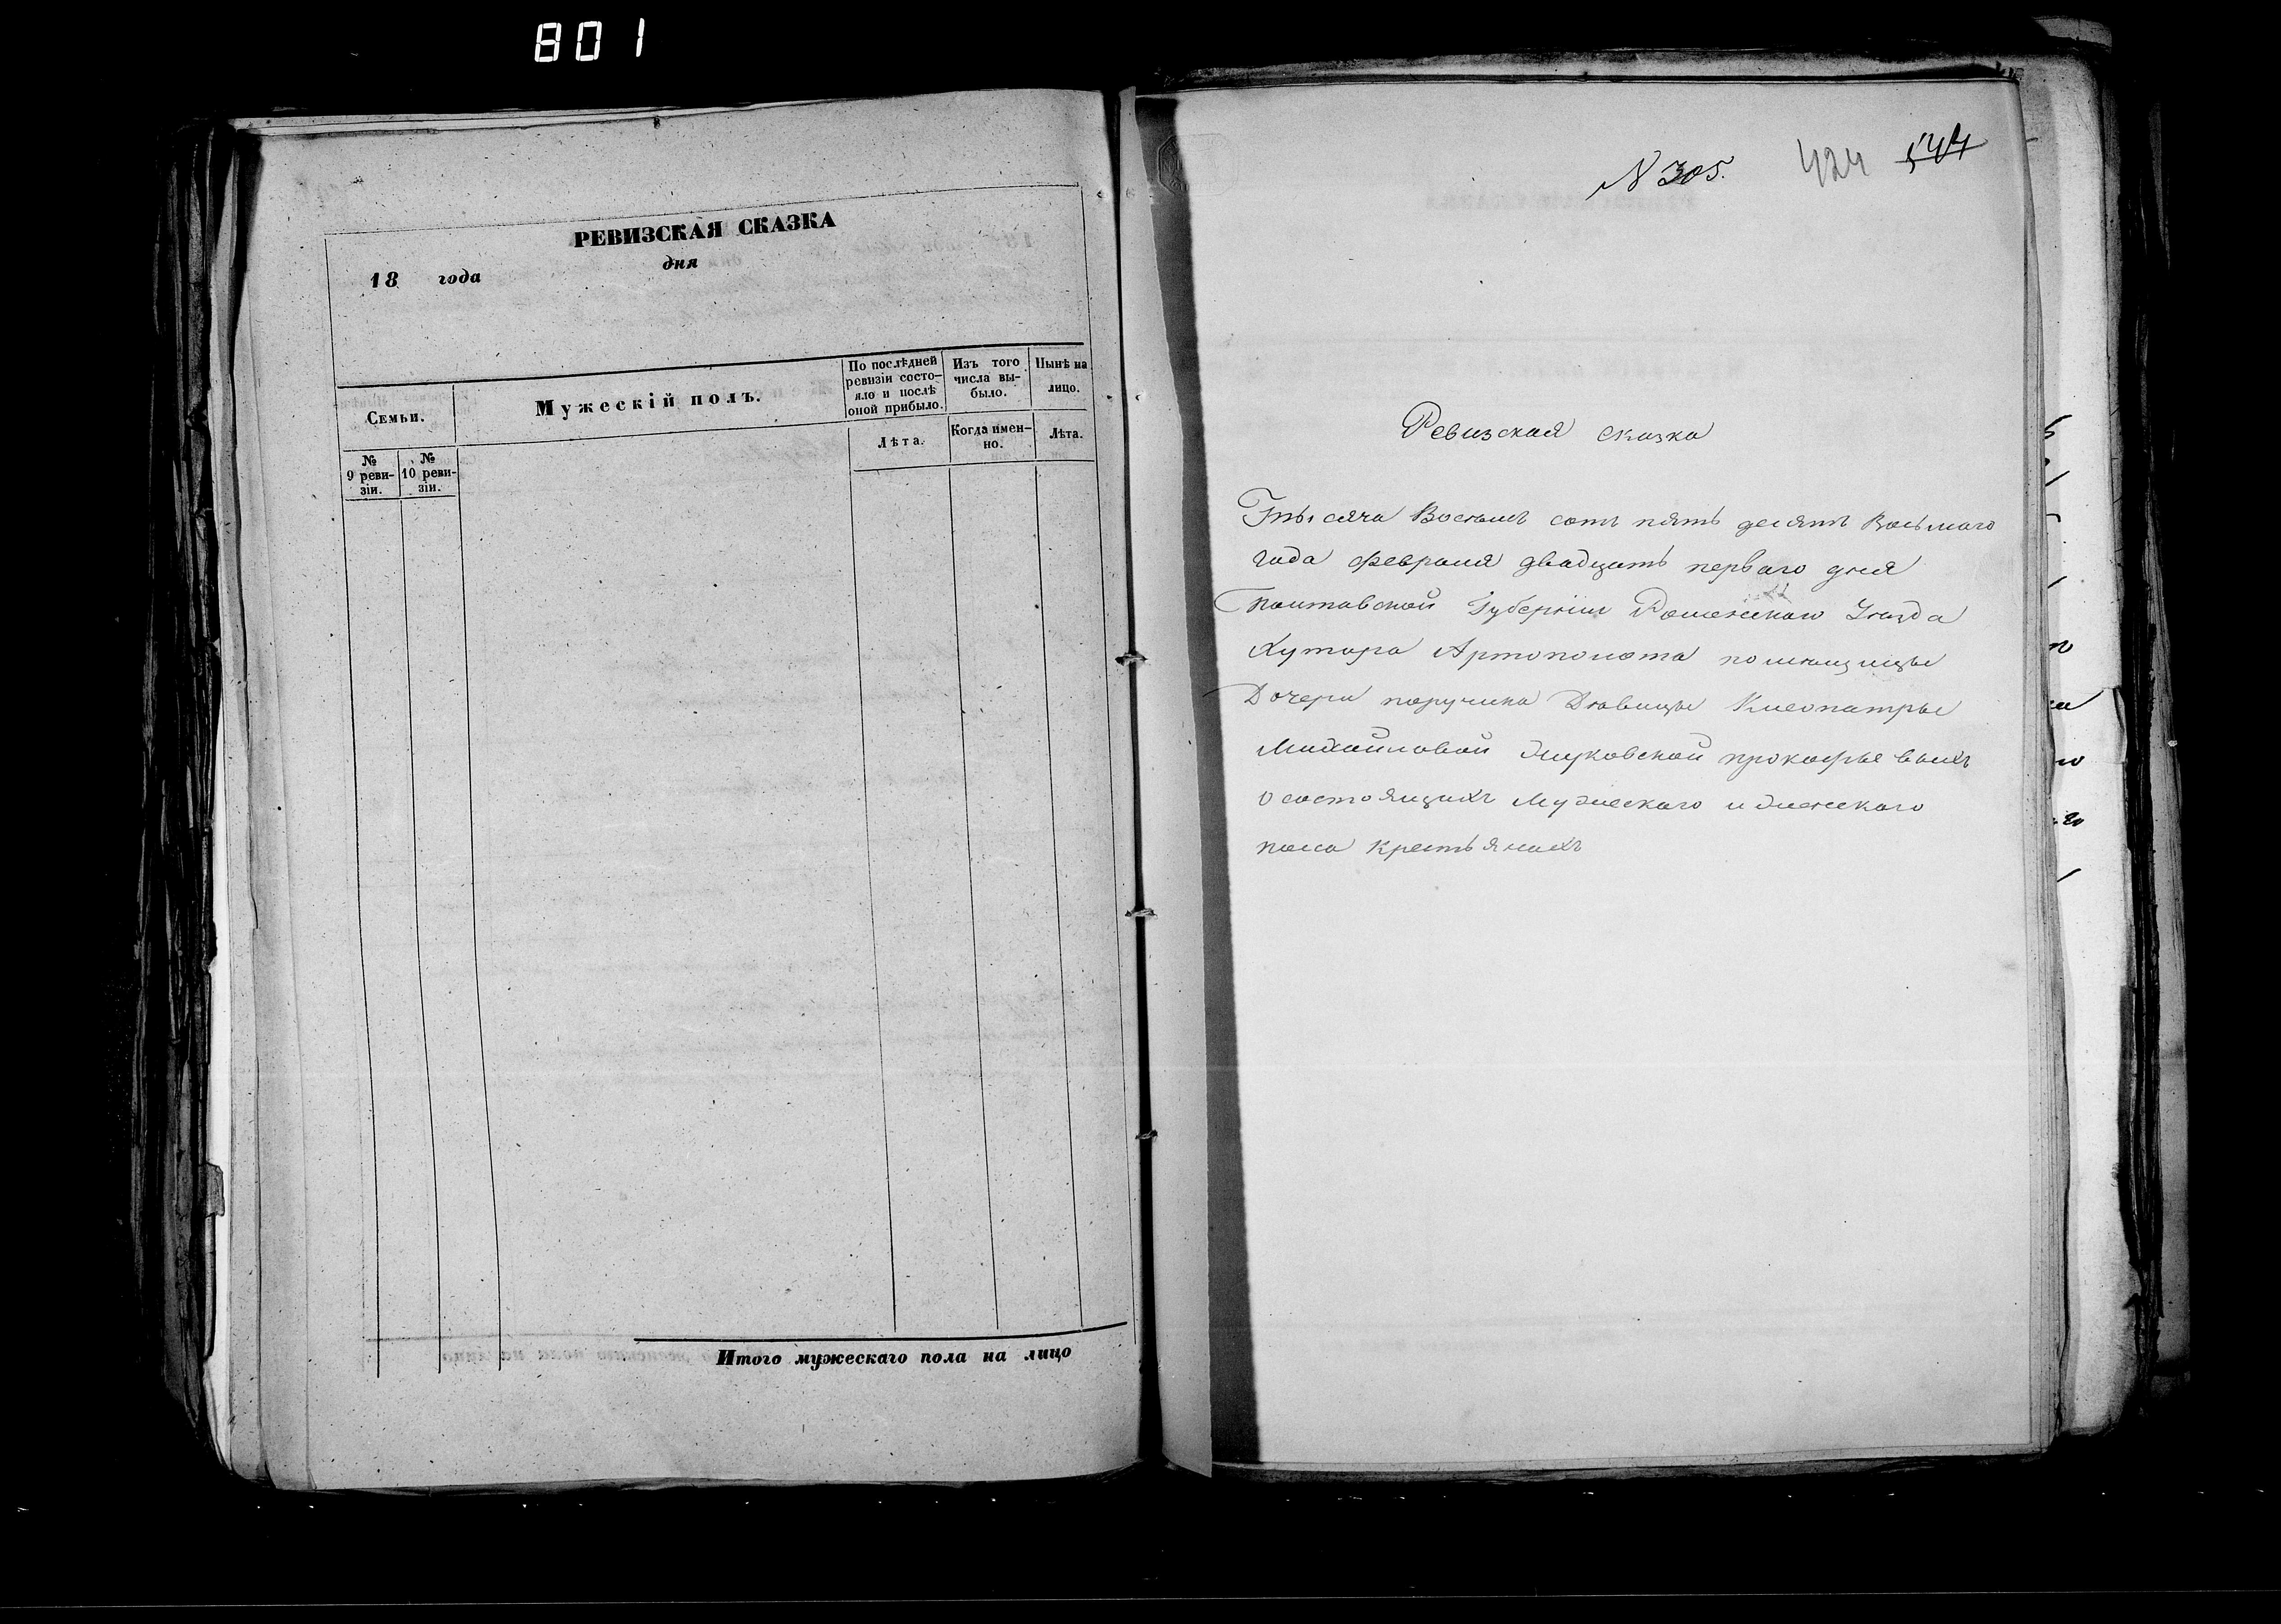 801
РЕВИЗСКАЯ СКАЗКА
18 года дня
Семьи.
Мужескій полъ.
По послѣдней ревизіи состояло и послѣ оной прибыло.
Изъ того числа выбыло.
Нынѣ на лицо.
Лѣта.
Когда именно.
Лѣта.
№ 9 ревизіи.
№ 10 ревизіи.
Итого мужескаго пола на лицо
N 305.
424
Ревизская сказка
Тысяча Восѣмъ сотъ пять десятъ Восьмаго
года февраля двадцать перваго дня
Полтавской Губерніи Роменскаго Уѣзда
Хутора Артополота помѣщицы
Дочери поручика Дѣвицы Клеопатры
Михайловой Жуковской прокофьевыхъ
о состоящихъ Мужескаго и женскаго
пола крестьянахъ